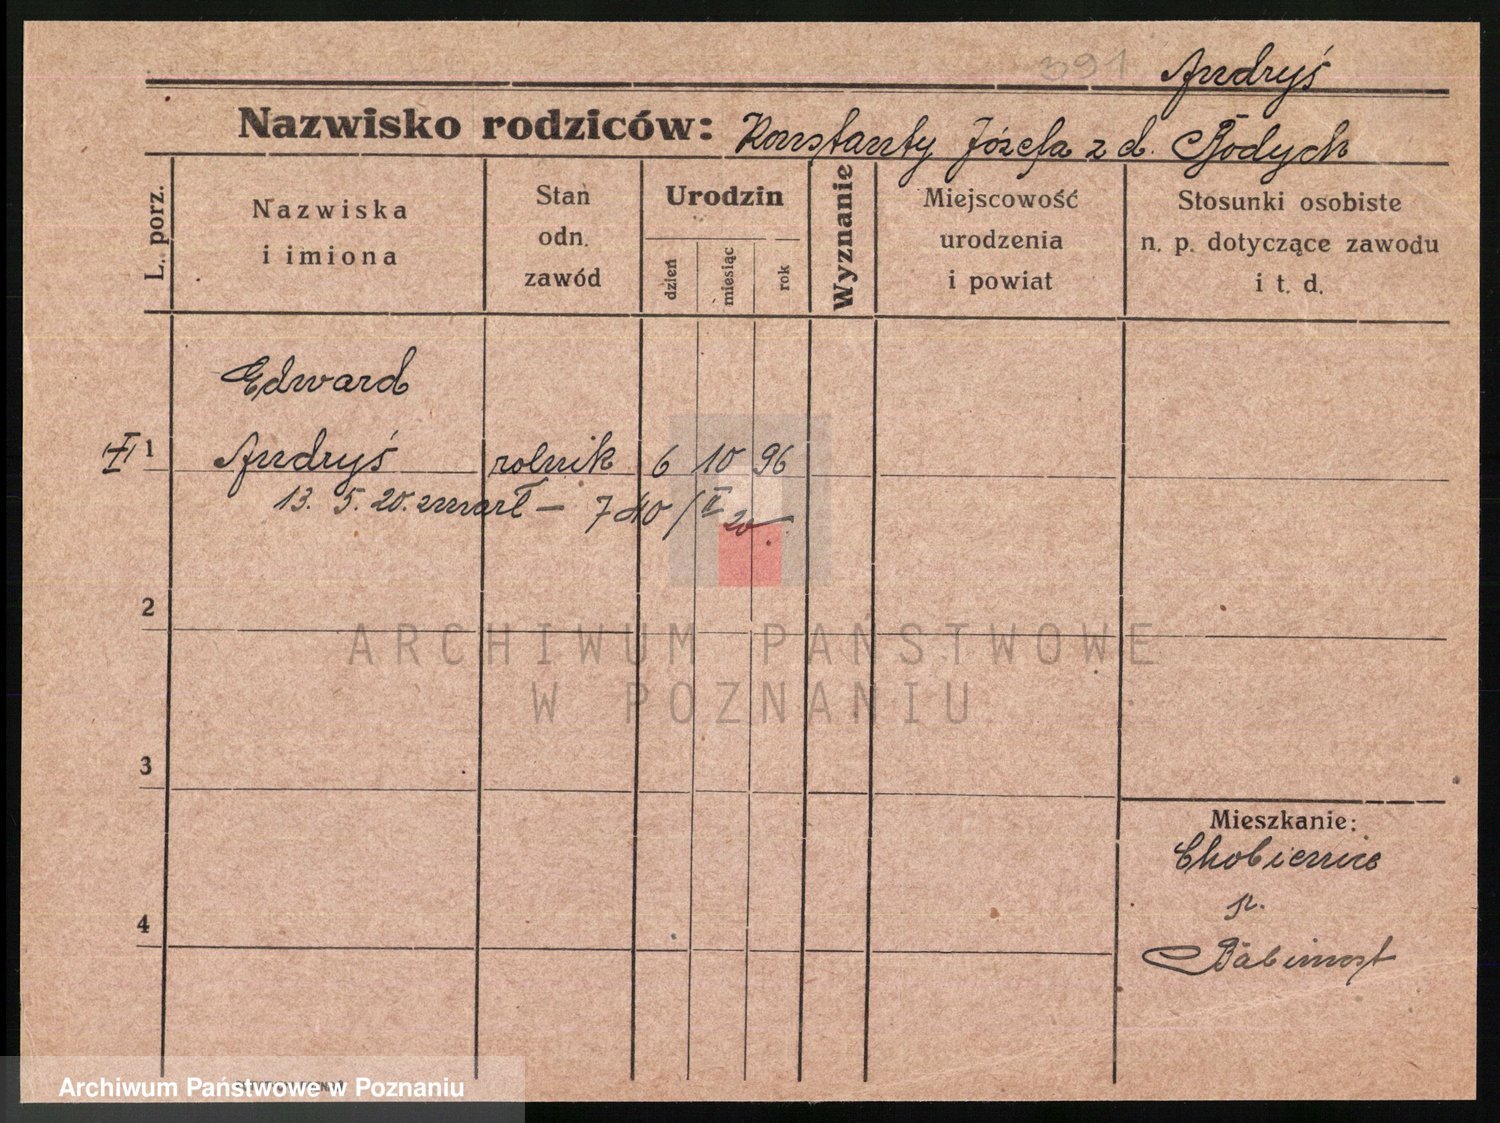 391 Andryś
Nazwisko rodziców: Konstanty Józefa z d. Bodych
L. porz.
Nazwiska
i imiona
Stan
odn.
zawód
Urodzin
dzień
miesiąc
rok
Wyznanie
Miejscowość
urodzenia
i powiat
Stosunki osobiste
n. p. dotyczące zawodu
i t. d.
Edward
1 Andryś rolnik 6 10 96
13. 5. 20. zmarł –
2
ARCHIWUM PAŃSTWOWE
W POZNANIU
3
Mieszkanie:
Chobienice
p.
4
Babimost
Archiwum Państwowe w Poznaniu